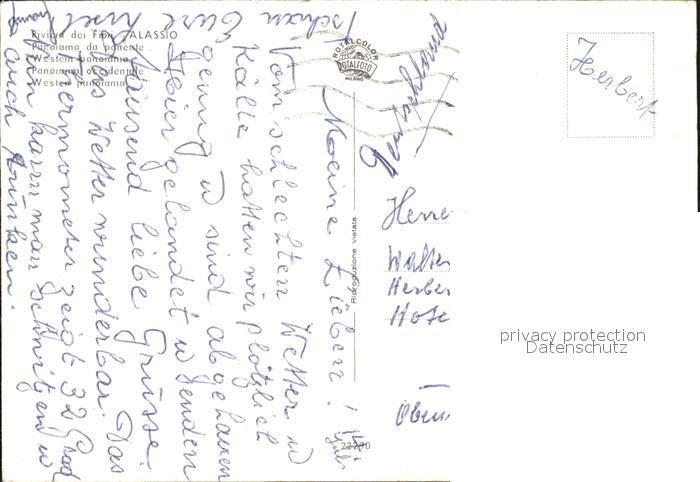 Riviera dei Fiori ALASSIO
Panorama da ponente
Western panorama
Panorama occidentale
Western panorama
ROTALCOLOR
ROTALFOTO
MILANO
Riproduzione vietata
22290
Meine Lieben! 14. Juli
Vom schlechten Wetter u
Kälte hatten wir plötzlich
genug u sind abgehauen
Hier gelandet u senden
tausend liebe Grüsse.
Das Wetter wunderbar. Das
Thermometer zeigt 32 Grad
Hier kann man schwitzen u
auch trinken.
Eure
Herbert
Herre
Walter
Herber
Hote
Ober
privacy protection
Datenschutz